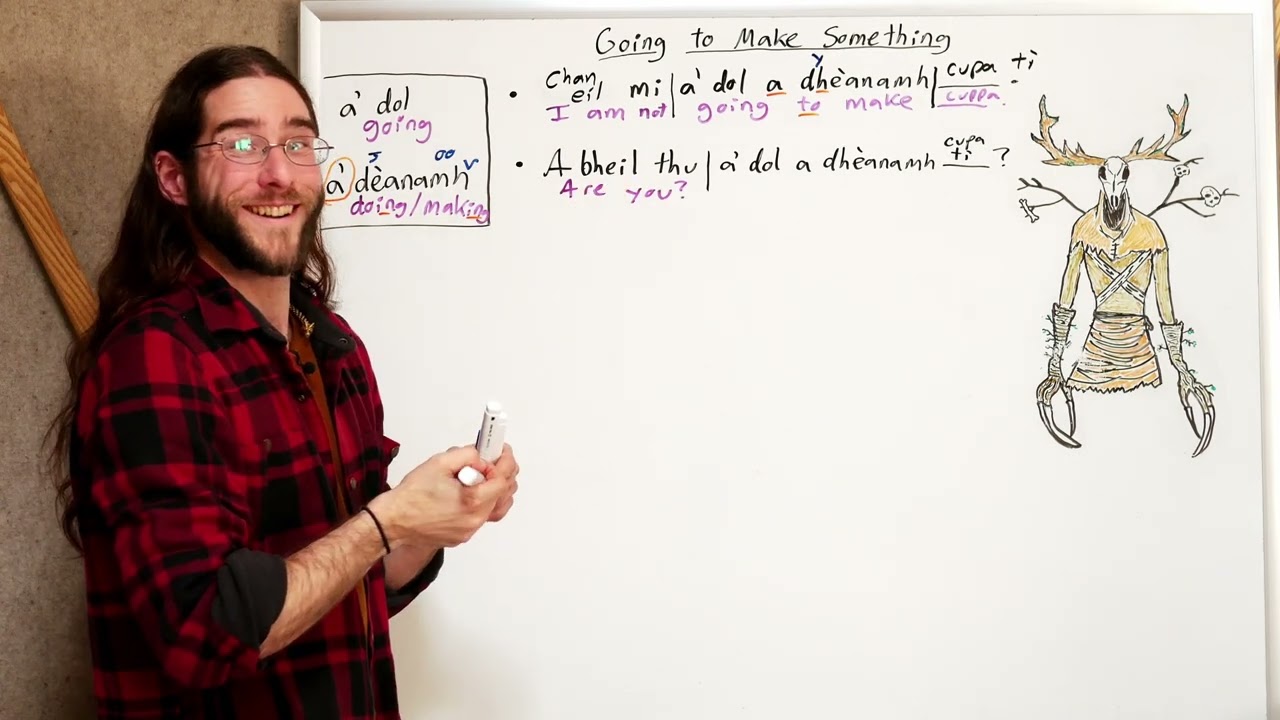 Going to Make Something
à' dol
going
j oo v
à' dèanamh
doing/making
• Chan eil mi | a' dol a dhèanamh | cupa tì.
y
I am not going to make cuppa
• A bheil thu | a' dol a dhèanamh cupa tì ?
Are you?